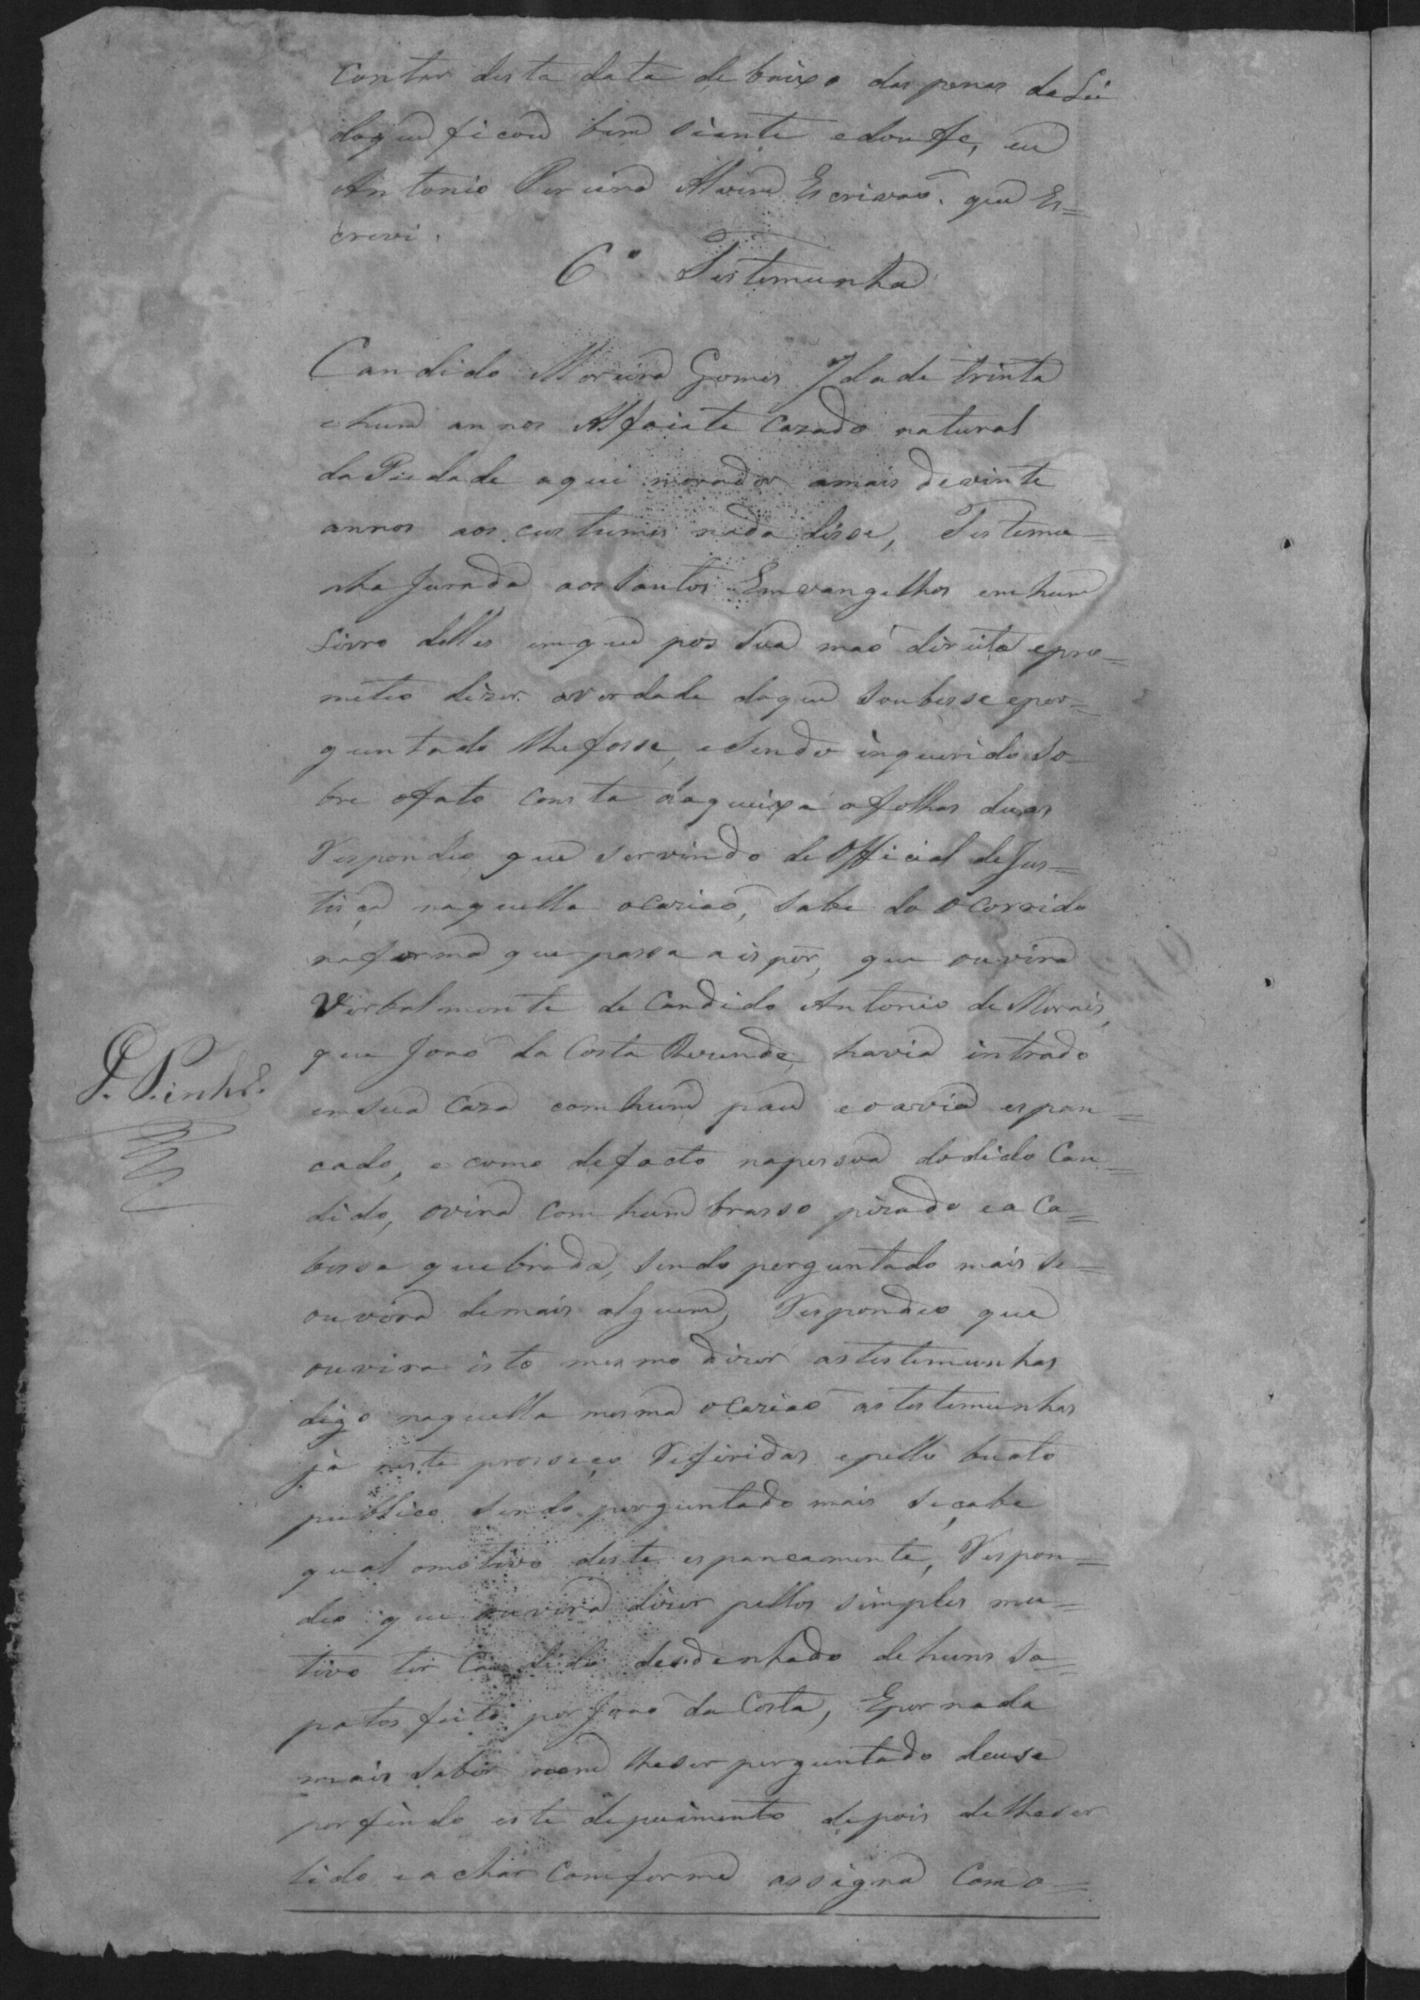 contar desta data debaixo das penas da Lei
doque ficou bem siente edou fe, eu
Antonio Pereira Escrivaõ que Es=
crevi.
6ª Testemunha
Candido Moreira Gomes Idade trinta
ehum annos Alfaiate Cazado natural
da Piedade aqui morador amais de vinte
annos aos custumes nada disse, Testemu=
nha Jurada aos Santos Emvangelhos em hum
Livro delles emque pos Sua maõ direita epro=
meteo dizer averdade doque Soubesse eper=
guntado lhefosse, eSendo inquerido So
bre ofato consta daqueixa afolhas duas
Respondeo que servindo de Official de Jus=
tiça naquella ocaziaõ, Sabe do Ocorrido
naforma que passa a ispor, que ouvira
Verbalmente de Candido Antonio de Morais,
que Joaõ da Costa Rezende, havia intrado
emsua Caza comhum pau eoavia espan=
cado, e como defacto napessoa dodido Can=
dido, ovira com hum brasso pizado ea Ca=
bessa quebrada, Sendo perguntado mais Se=
ouvira demais alguem, Respondeo que
ouvira isto mesmo dizer astestemunhas
digo naquella mesma ocaziaõ astestemunhas
já neste prosseço Referidas epello buato
publico Sendo perguntado mais Seçabe
qual omotivo deste espancamento, Respon=
deo que ouvira dizer pellos simples mu=
tivo ter Candido desdenhado dehuns Sa=
patos feito por Joaõ da Costa, Epor nada
mais Saber nem lheser perguntado deuse
porfindo este depuimento depois delheser
lido eachar comforme assigna Como=
J. Pinhº.